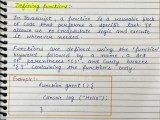 Defining functions:-
In Javascript, a function is a reusable block
of code that performs a specific task. It
allows us to encapsulate logic and execute
it whenever needed.
Functions are defined using the "function"
keyword followed by a name, a set
of parentheses '()', and curly braces
'{ }' containing the function's body.
Example:-
function greet () {
console.log ("Hello");
}